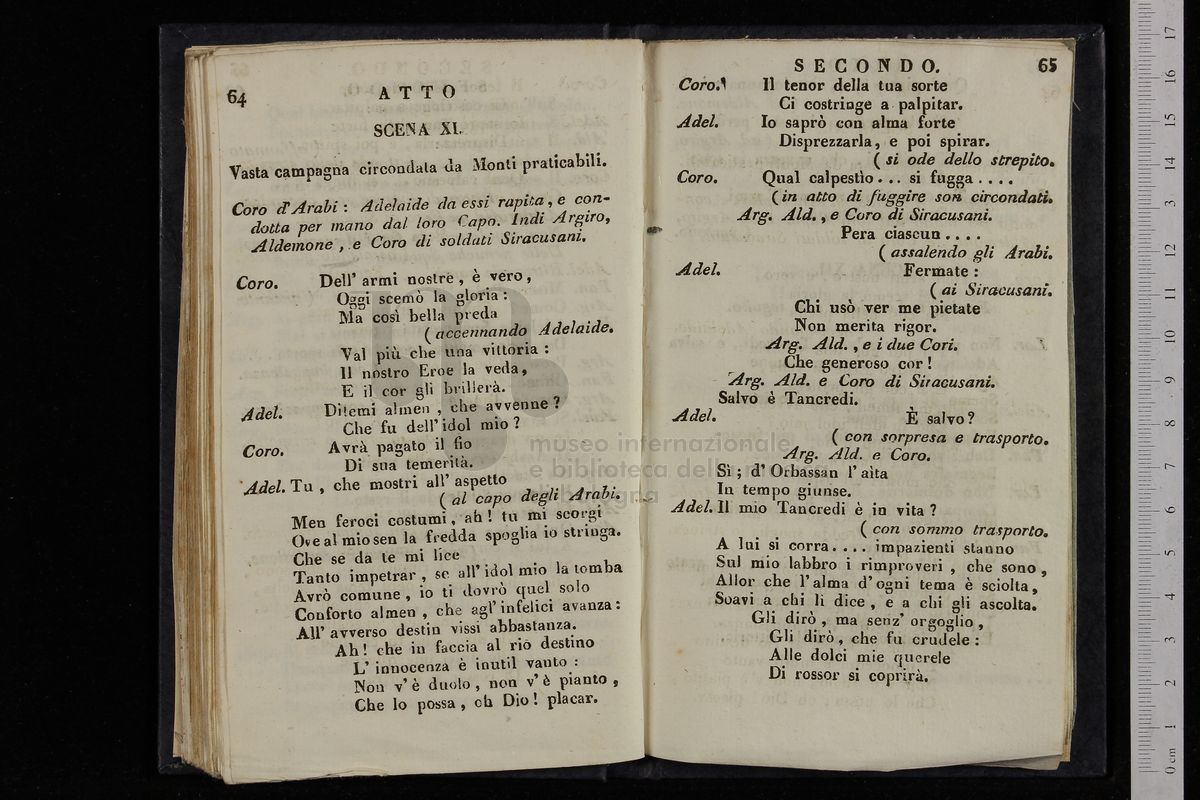 64
ATTO
SCENA XI.
Vasta campagna circondata da Monti praticabili.
Coro d'Arabi : Adelaide da essi rapita, e con-
dotta per mano dal loro Capo. Indi Argiro,
Aldemone , e Coro di soldati Siracusani.
Coro. Dell' armi nostre , è vero ,
Oggi scemò la gloria :
Ma così bella preda
( accennando Adelaide.
Val più che una vittoria :
Il nostro Eroe la veda ,
E il cor gli brillerà.
Adel. Ditemi almen , che avvenne ?
Che fu dell' idol mio ?
Coro. Avrà pagato il fio
Di sua temerità.
Adel. Tu , che mostri all' aspetto
( al capo degli Arabi.
Men feroci costumi , ah ! tu mi scorgi
Ove al mio sen la fredda spoglia io stringa.
Che se da te mi lice
Tanto impetrar , se all' idol mio la tomba
Avrò comune , io ti dovrò quel solo
Conforto almen , che agl' infelici avanza :
All' avverso destin vissi abbastanza.
Ah ! che in faccia al rio destino
L' innocenza è inutil vanto :
Non v' è duolo , non v' è pianto ,
Che lo possa , oh Dio ! placar.
SECONDO.
65
Coro. Il tenor della tua sorte
Ci costringe a palpitar.
Adel. Io saprò con alma forte
Disprezzarla, e poi spirar.
( si ode dello strepito.
Coro. Qual calpestìo . . . si fugga . . . .
( in atto di fuggire son circondati.
Arg. Ald. , e Coro di Siracusani.
Pera ciascun . . . .
( assalendo gli Arabi.
Adel. Fermate :
( ai Siracusani.
Chi usò ver me pietate
Non merita rigor.
Arg. Ald. , e i due Cori.
Che generoso cor !
Arg. Ald. e Coro di Siracusani.
Salvo è Tancredi.
Adel. È salvo ?
( con sorpresa e trasporto.
Arg. Ald. e Coro.
Sì ; d' Orbassan l' aìta
In tempo giunse.
Adel. Il mio Tancredi è in vita ?
( con sommo trasporto.
A lui si corra . . . . impazienti stanno
Sul mio labbro i rimproveri , che sono ,
Allor che l' alma d' ogni tema è sciolta ,
Soavi a chi li dice , e a chi gli ascolta.
Gli dirò , ma senz' orgoglio ,
Gli dirò , che fu crudele :
Alle dolci mie querele
Di rossor si coprirà.
museo internazionale
e biblioteca della
bologna
0 cm 1 2 3 4 5 6 7 8 9 10 11 12 13 14 15 16 17